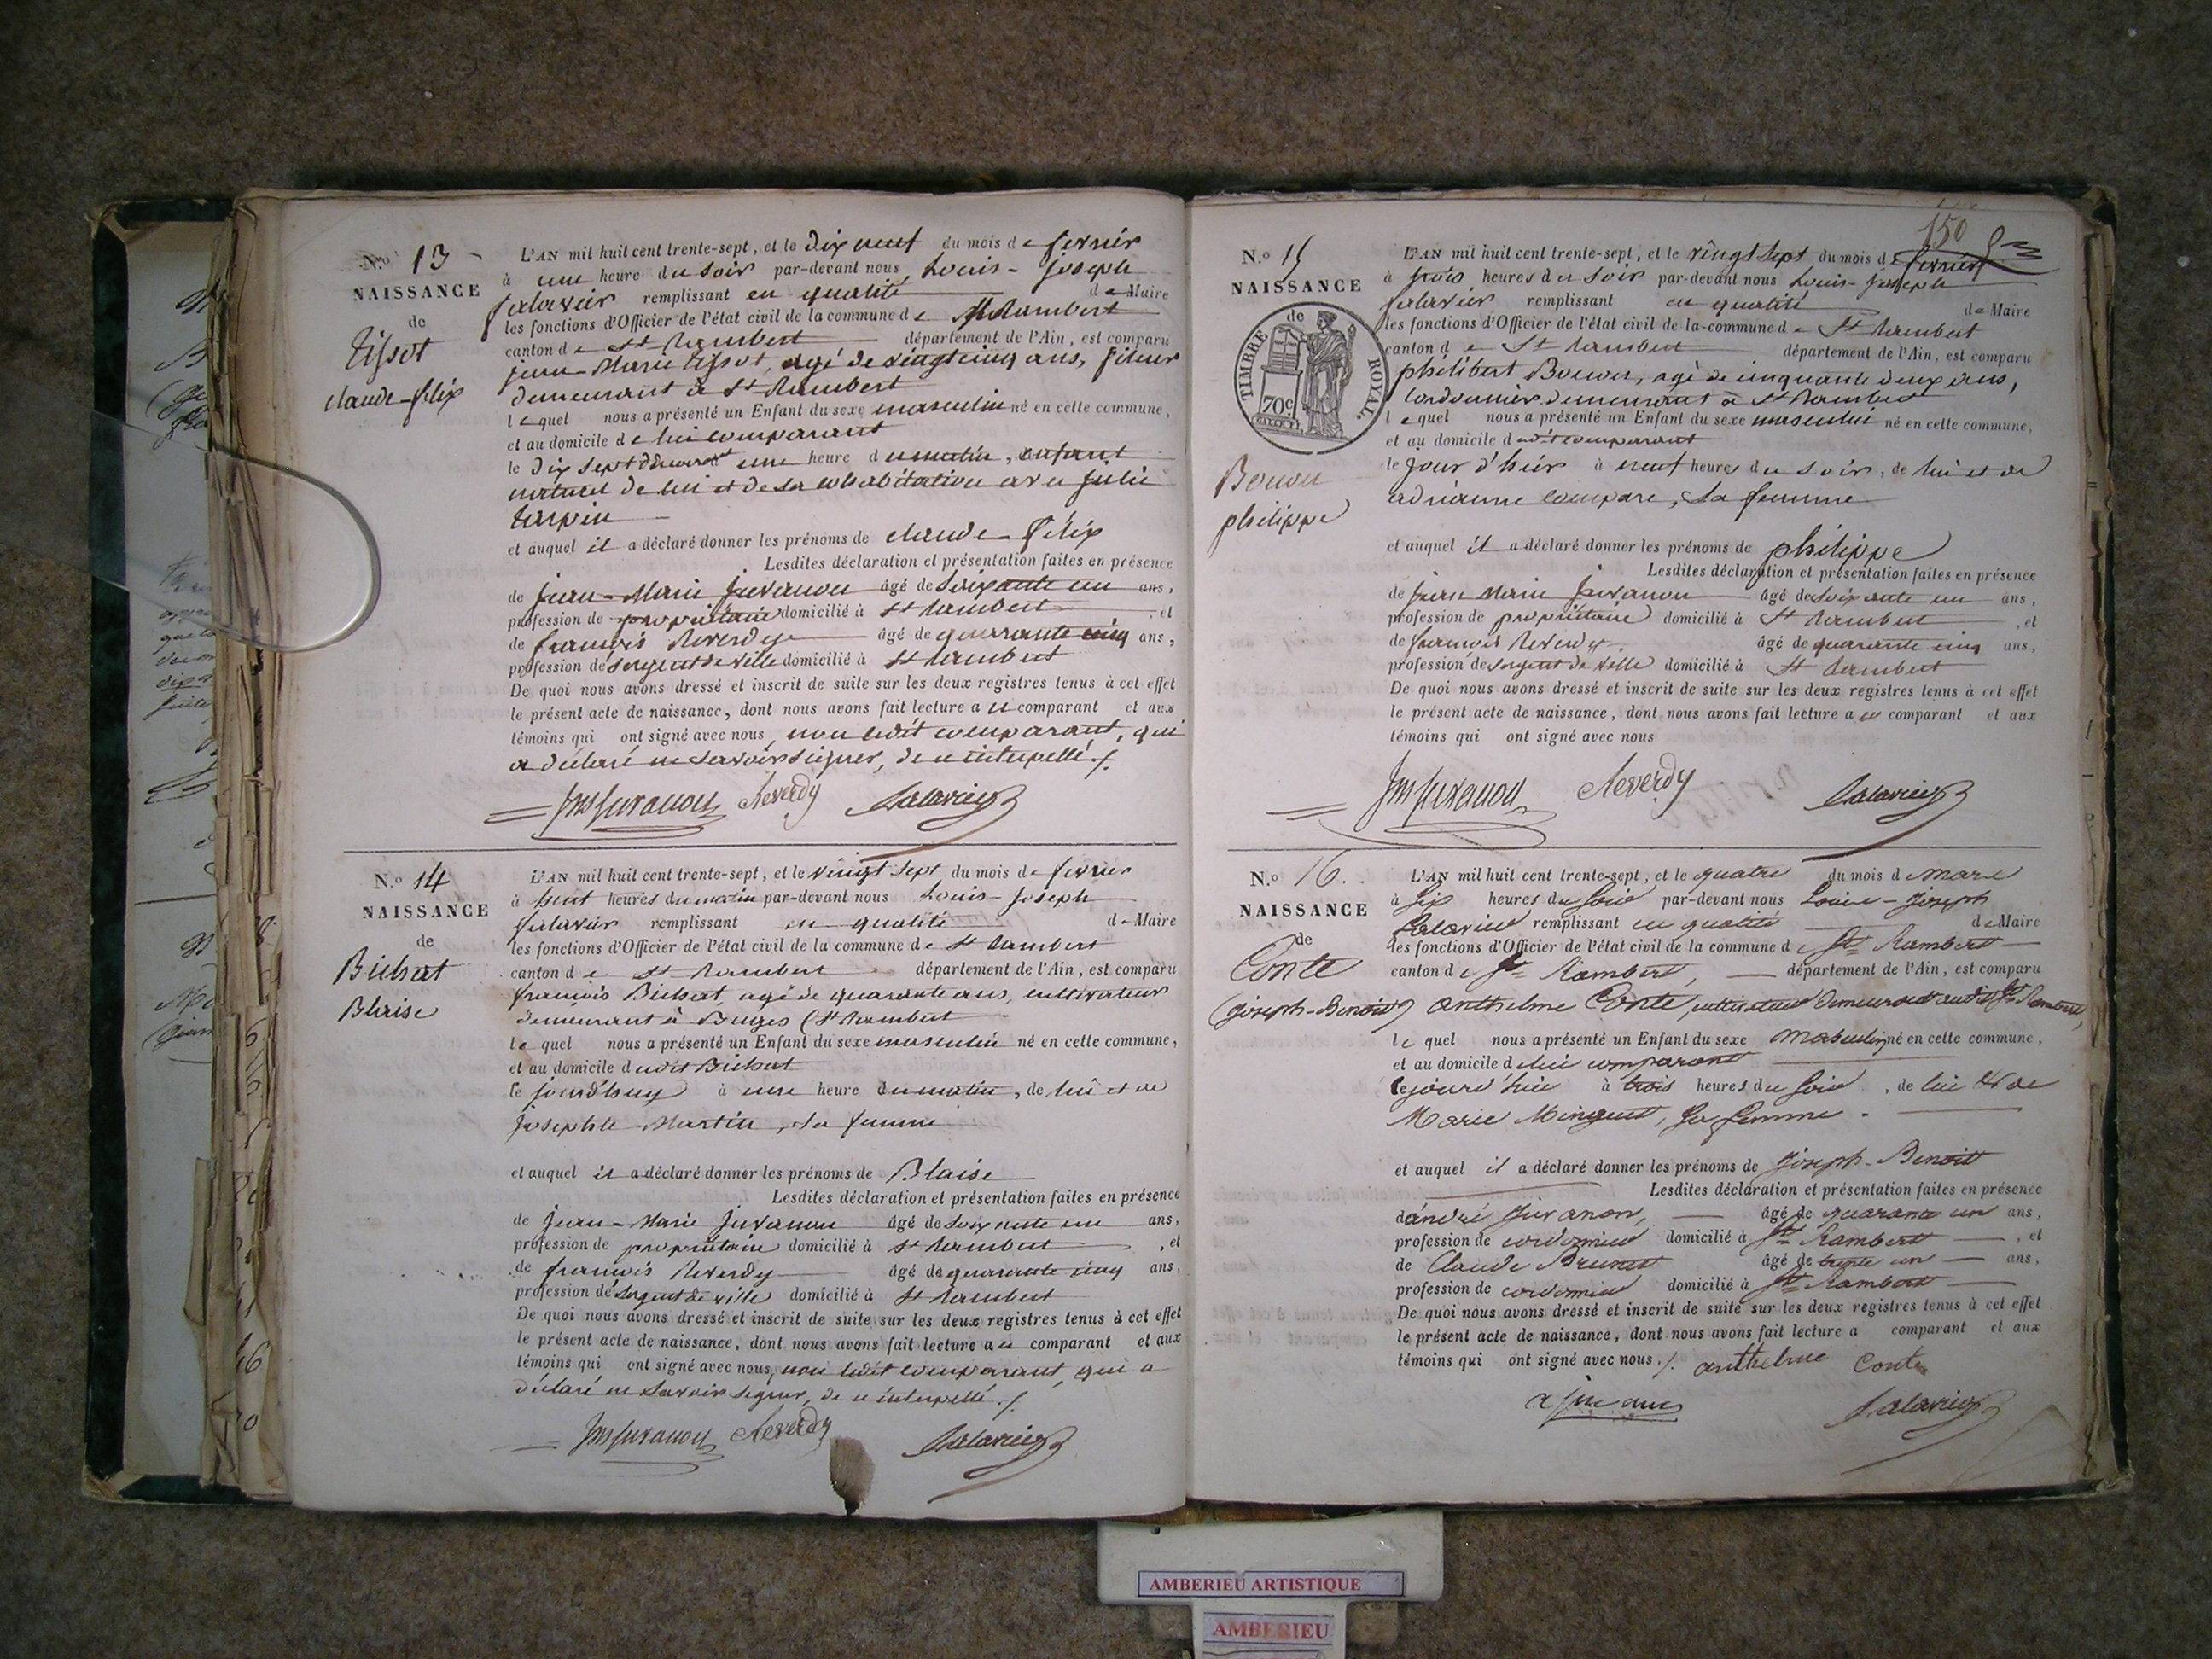 N.o 13
NAISSANCE
de
Tissot
claude-félix
L'AN mil huit cent trente-sept, et le dix neuf du mois de fevrier
à une heure du soir par-devant nous Louis-Joseph
Salavier remplissant en qualité de Maire
les fonctions d'Officier de l'état civil de la commune de St Rambert
canton de St Rambert département de l'Ain, est comparu
jean-Marie Tissot, agé de vingt cinq ans, fileur
demeurant à St Rambert
lequel nous a présenté un Enfant du sexe masculin né en cette commune,
et au domicile de lui comparant
le dix sept du courant une heure du matin, enfant
naturel de lui et de sa cohabitation avec julie
turpin
et auquel il a déclaré donner les prénoms de claude-félix
Lesdites déclaration et présentation faites en présence
de jean-Marie juvanon âgé de soixante un ans,
profession de propriétaire domicilié à St Rambert, et
de françois Reverdy âgé de quarante cinq ans,
profession de sergent de ville domicilié à St Rambert
De quoi nous avons dressé et inscrit de suite sur les deux registres tenus à cet effet
le présent acte de naissance, dont nous avons fait lecture a u comparant et aux
témoins qui ont signé avec nous, non ledit comparant, qui
a déclaré ne savoir signer, de ce interpellé ./.
Jm Juvanon Reverdy Salavier
N.o 14
NAISSANCE
de
Bichat
Blaise
L'AN mil huit cent trente-sept, et le vingt sept du mois de fevrier
à huit heures du matin par-devant nous Louis-Joseph
Salavier remplissant en qualité de Maire
les fonctions d'Officier de l'état civil de la commune de St Rambert
canton de St Rambert département de l'Ain, est comparu
françois Bichat, agé de quarante ans, cultivateur
demeurant à Buges (St Rambert
lequel nous a présenté un Enfant du sexe masculin né en cette commune,
et au domicile dudit Bichat
le jourd'huy à une heure du matin, de lui et de
josephte Martin, sa femme
et auquel il a déclaré donner les prénoms de Blaise
Lesdites déclaration et présentation faites en présence
de jean-Marie juvanon âgé de soixante un ans,
profession de propriétaire domicilié à St Rambert, et
de françois Reverdy âgé de quarante cinq ans,
profession de sergent de ville domicilié à St Rambert
De quoi nous avons dressé et inscrit de suite sur les deux registres tenus à cet effet
le présent acte de naissance, dont nous avons fait lecture a u comparant et aux
témoins qui ont signé avec nous, non ledit comparant, qui a
déclaré ne savoir signer, de ce interpellé ./.
Jm Juvanon Reverdy Salavier
150
N.o 15
NAISSANCE
de
TIMBRE ROYAL
70c
Bouvu
philippe
L'AN mil huit cent trente-sept, et le vingt sept du mois de fevrier
à trois heures du soir par-devant nous Louis-Joseph
Salavier remplissant en qualité de Maire
les fonctions d'Officier de l'état civil de la commune de St Rambert
canton de St Rambert département de l'Ain, est comparu
philibert , agé de cinquante deux ans,
cordonnier demeurant à St Rambert
lequel nous a présenté un Enfant du sexe masculin né en cette commune,
et au domicile dudit comparant
le jour d'hier à neuf heures du soir, de lui et de
adrianne compare, sa femme
et auquel il a déclaré donner les prénoms de philippe
Lesdites déclaration et présentation faites en présence
de jean Marie juvanon âgé de soixante un ans,
profession de propriétaire domicilié à St Rambert, et
de françois Reverdy âgé de quarante cinq ans,
profession de sergent de ville domicilié à St Rambert
De quoi nous avons dressé et inscrit de suite sur les deux registres tenus à cet effet
le présent acte de naissance, dont nous avons fait lecture a u comparant et aux
témoins qui ont signé avec nous
Jm Juvanon Reverdy Salavier
N.o 16.
NAISSANCE
de
Conte
(joseph-Benoit)
L'AN mil huit cent trente-sept, et le quatre du mois de mars
à Six heures du Soir par-devant nous Louis-Joseph
Salavier remplissant en qualité de Maire
les fonctions d'Officier de l'état civil de la commune de St Rambert
canton de St Rambert, département de l'Ain, est comparu
anthelme Conte, cultivateur demeurant audit St Rambert,
lequel nous a présenté un Enfant du sexe masculin né en cette commune,
et au domicile de lui comparant
le jourd'hui à trois heures du Soir, de lui & de
Marie Mingeut, sa femme.
et auquel il a déclaré donner les prénoms de joseph-Benoit
Lesdites déclaration et présentation faites en présence
d'andré juvanon, âgé de quarante un ans,
profession de cordonnier domicilié à St Rambert, et
de Claude Brunet âgé de trente un ans,
profession de cordonnier domicilié à St Rambert
De quoi nous avons dressé et inscrit de suite sur les deux registres tenus à cet effet
le présent acte de naissance, dont nous avons fait lecture a comparant et aux
témoins qui ont signé avec nous ./. anthelme Conte
Salavier
AMBERIEU ARTISTIQUE
AMBERIEU